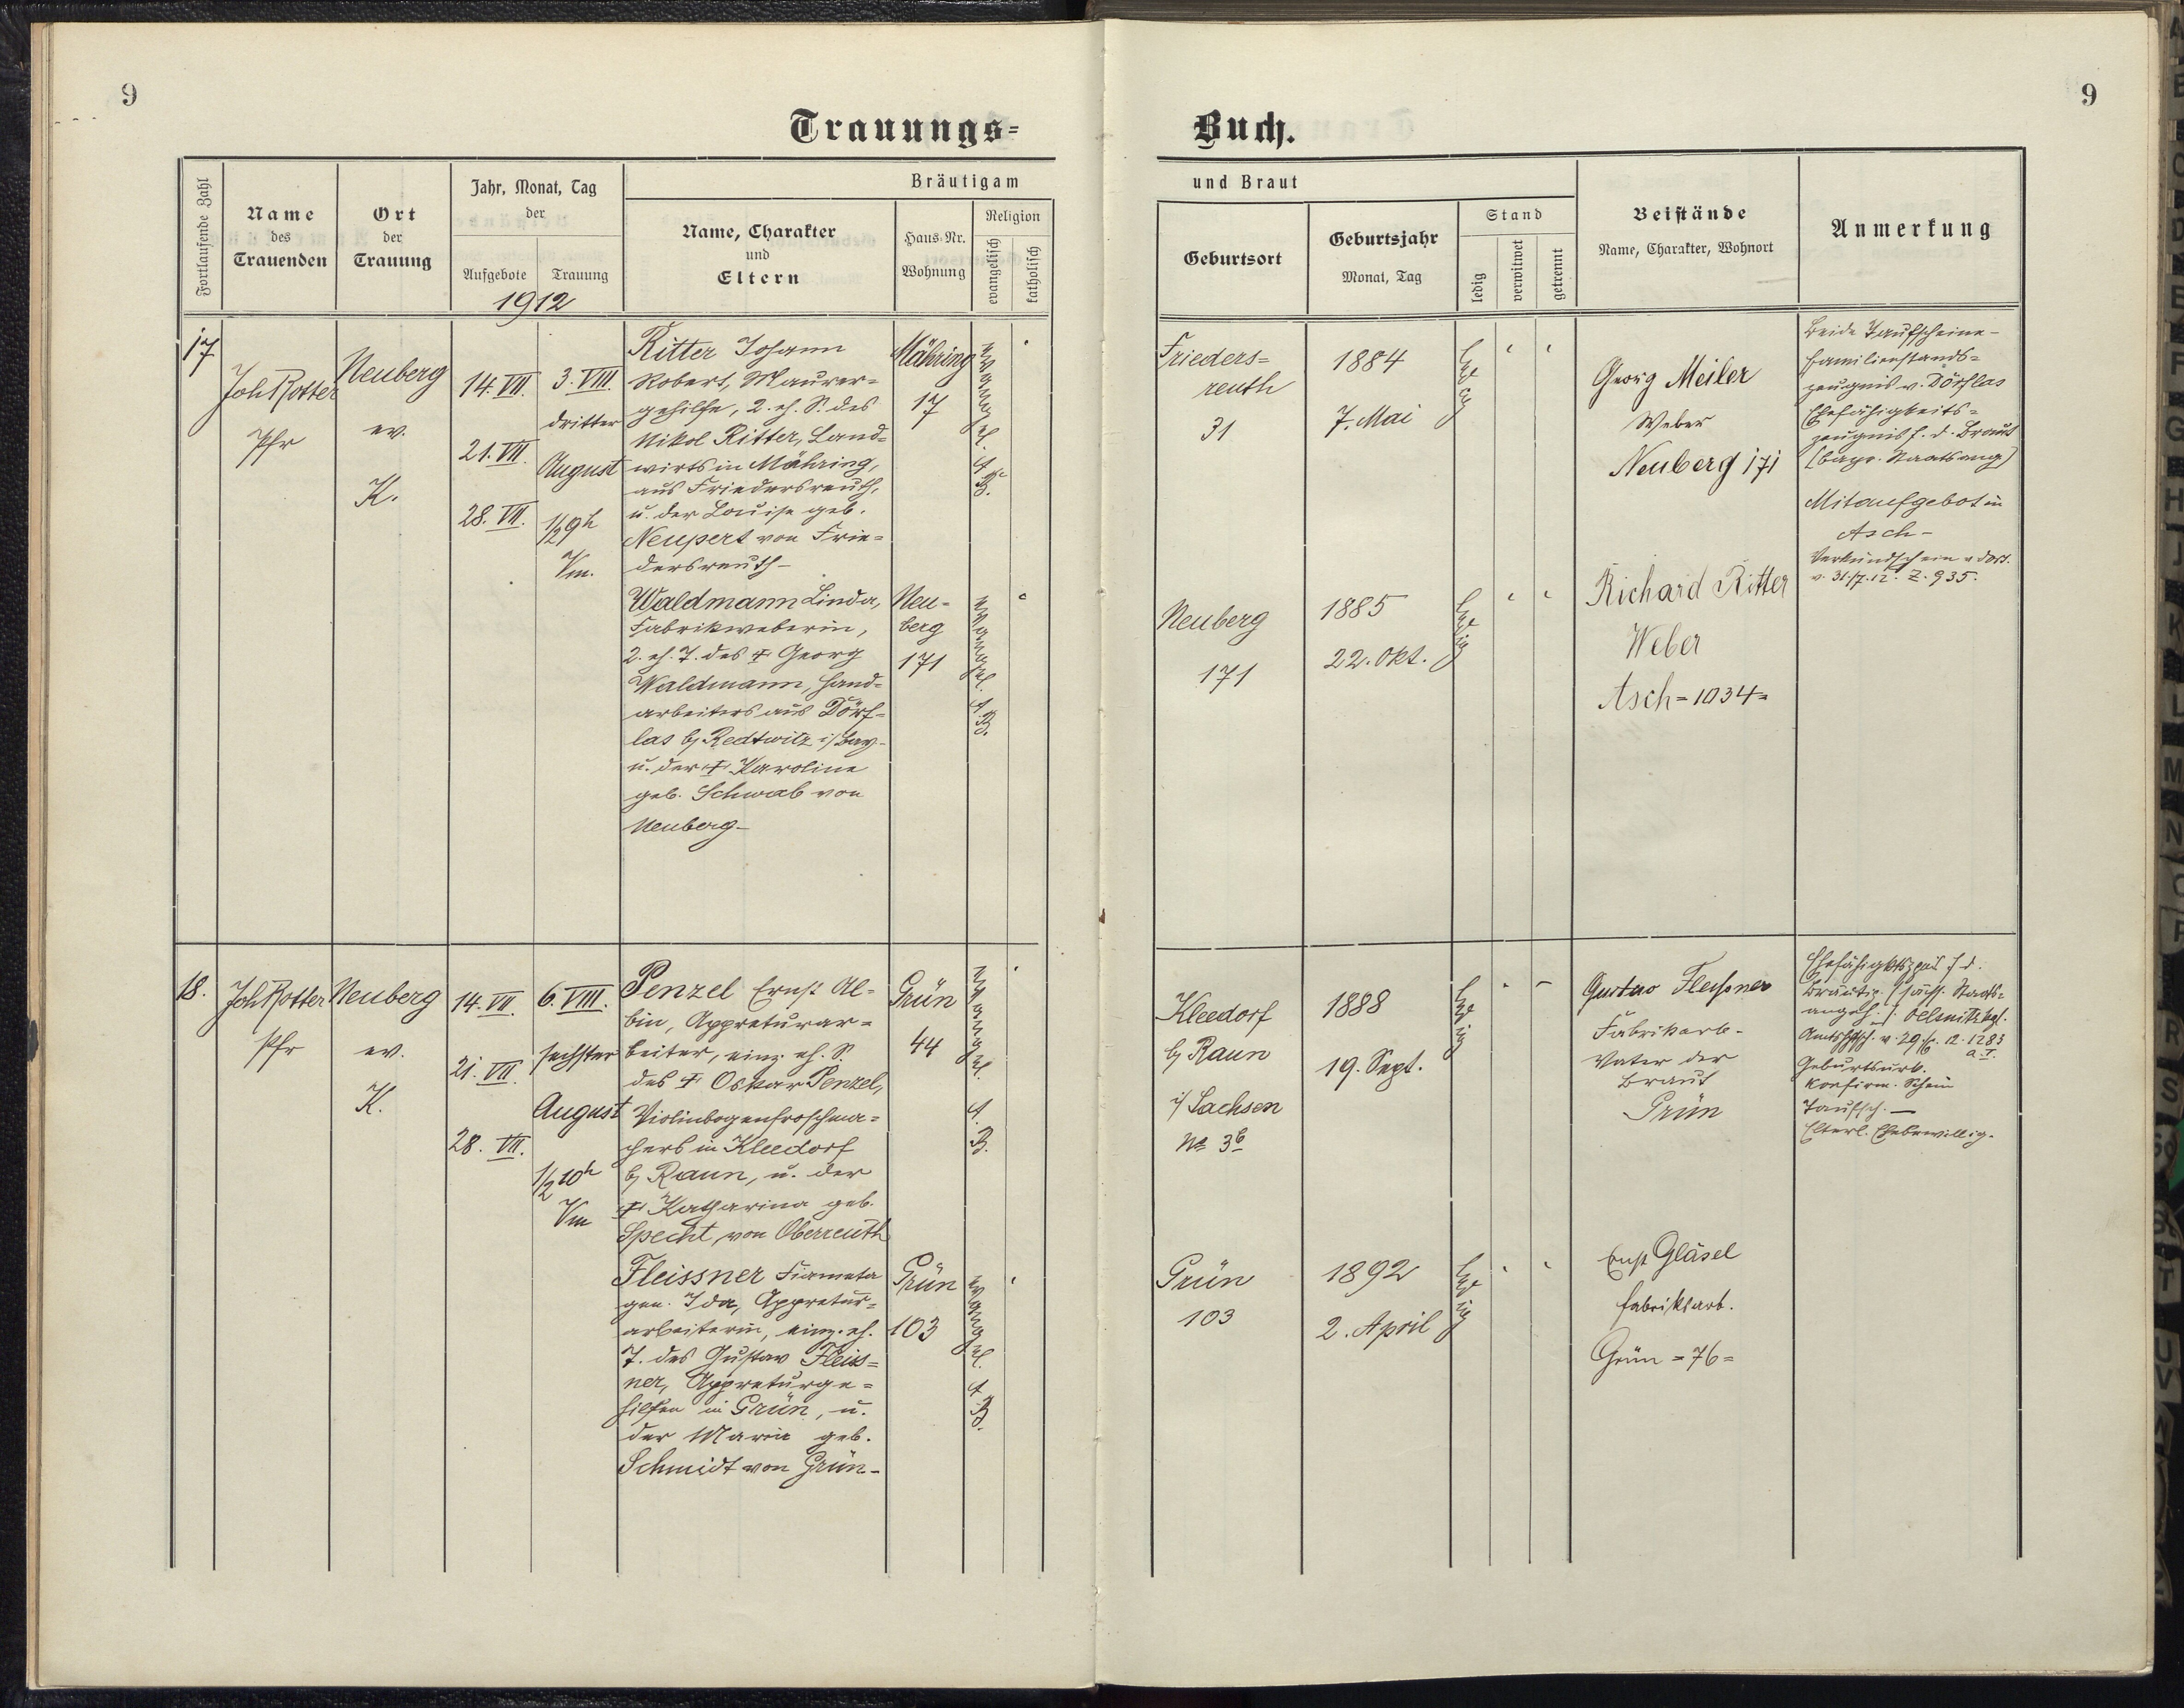 9
9
Trauungs=
Buch.
Fortlaufende Zahl
Name
des
Trauenden
Ort
der
Trauung
Jahr, Monat, Tag
der
Aufgebote
Trauung
1912
Bräutigam
Name, Charakter
und
Eltern
Haus-Nr.
Wohnung
Religion
evangelisch
katholisch
und Braut
Geburtsort
Geburtsjahr
Monat, Tag
Stand
ledig
verwitwet
getrennt
Beistände
Name, Charakter, Wohnort
Anmerkung
17
Joh Rotter
Pfr
Neuberg
ev.
K.
14. VII.
21. VII.
28. VII.
3. VIII.
dritter
August
1/2 9h
Vm.
Ritter Johann
Robert, Maurer=
gehilfe, 2. eh. S. des
Nikol Ritter, Land=
wirts in Mähring,
aus Friedersreuth,
u. der Louise geb.
Neupert von Frie=
dersreuth-
Mähring
17
evangel.
A.
B.
Frieders=
reuth
31
1884
7. Mai
ledig
Georg Meiler
Weber
Neuberg 171
Beide Taufscheine-
Familienstands=
zeugnis v. Dörflas
Ehefähigkeits=
zeugnis f. d. Braut
(bayr. Staatsang)
Mitaufgebot in
Asch-
Verkündschein v dort.
v. 31./7. 12. Z. 935.
Waldmann Linda,
Fabrikweberin,
2. eh. T. des † Georg
Waldmann, Hand=
arbeiters aus Dörf=
las b/ Redtwitz i/ Bay-
u. der † Karoline
geb. Schwab von
Neuberg-
Neu-
berg
171
evangel.
A.
B.
Neuberg
171
1885
22. Okt.
ledig
Richard Ritter
Weber
Asch=1034=
18.
Joh Rotter
Pfr
Neuberg
ev.
K.
14. VII.
21. VII.
28. VII.
6. VIII.
sechster
August
1/2 10h
Vm
Penzel Ernst Al=
bin, Appreturar=
beiter, einz. eh. S.
des † Oskar Penzel,
Violinbogenfroschma=
chers in Kleedorf
b/ Raun, u. der
† Katharina geb.
Specht, von Oberreuth
Grün
44
evangel.
A.
B.
Kleedorf
b/ Raun
i/ Sachsen
No 3b
1888
19. Sept.
ledig
Gustav Fleißner
Fabrikarb-
Vater der
Braut
Grün
Bräutig. (sächs. Staats=
angeh.): Oelsnitz kgl.
Geburtsurk.
Konfirm. Schein
Taufsch.-
Elterl. Ehebewillig.
Fleissner Fiameta
gen. Ida, Appretur=
arbeiterin, einz. eh.
T. des Gustav Fleiss=
ner, Appreturge=
hilfen in Grün, u.
der Marie geb.
Schmidt von Grün-
Grün
103
evangel.
A.
B.
Grün
103
1892
2. April
ledig
Ernst Gläsel
Fabriksarb.
Grün =76=